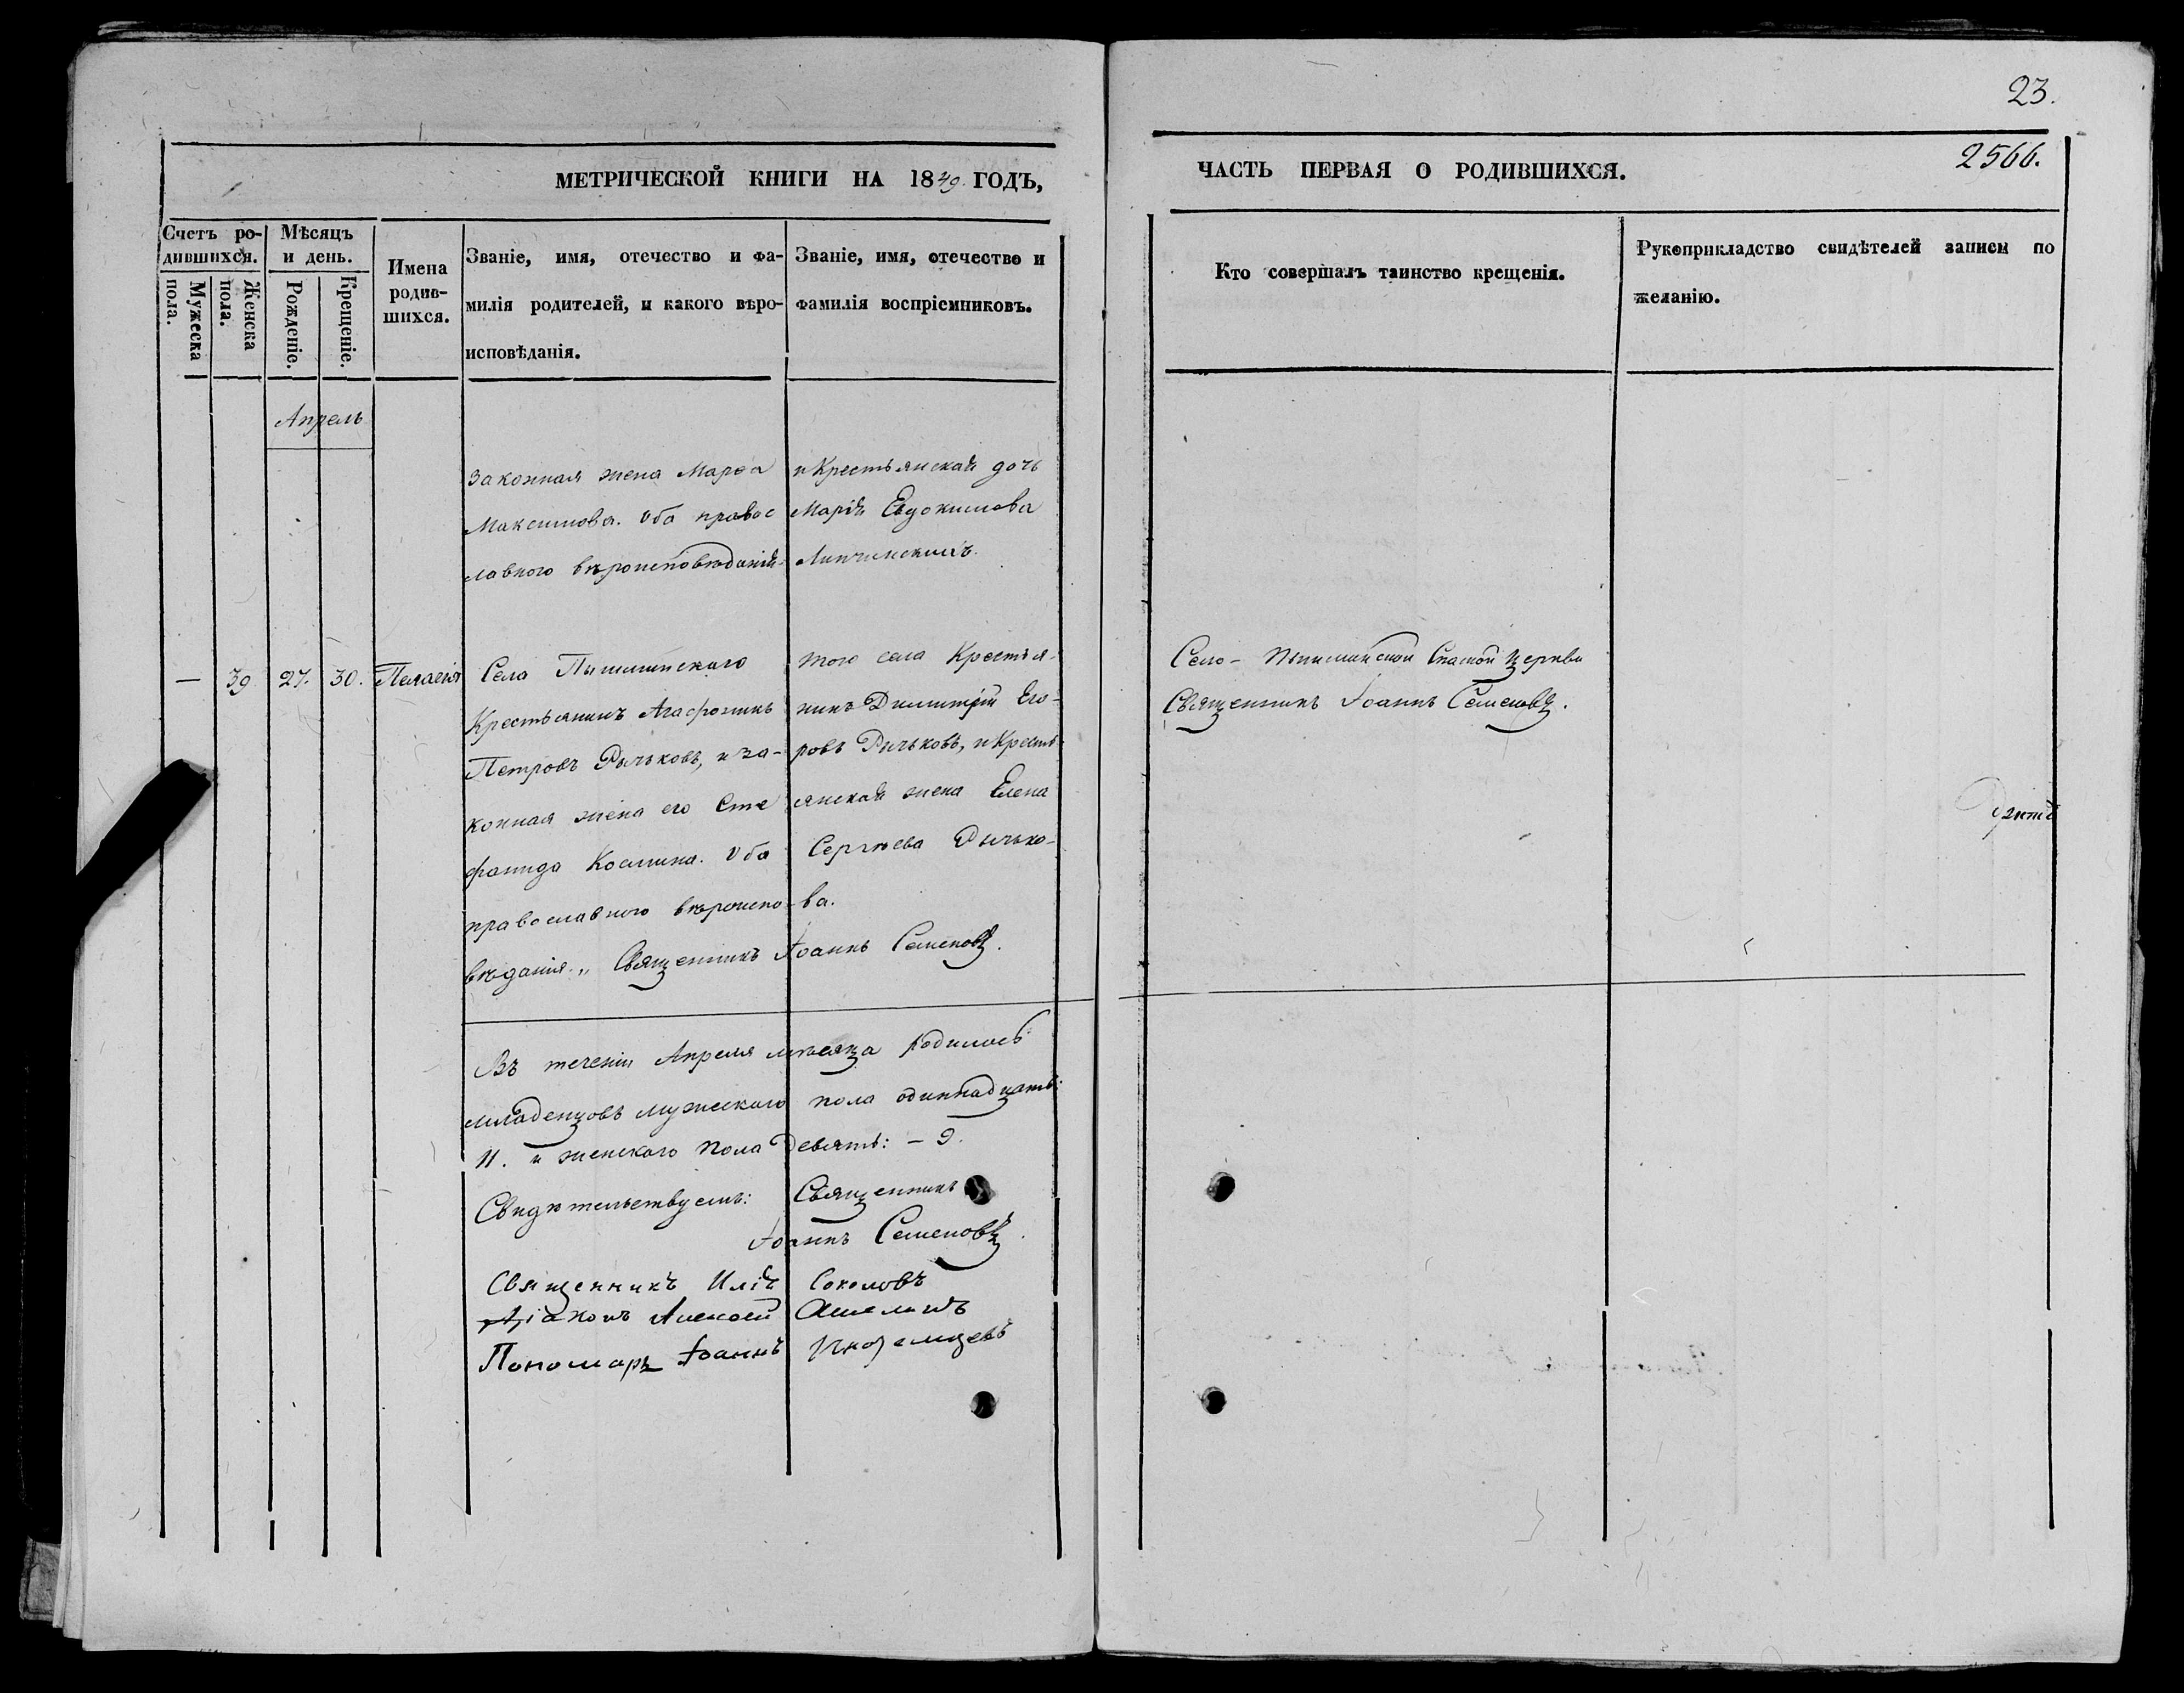 23.
МЕТРИЧЕСКОЙ КНИГИ НА 1849 ГОДЪ,
ЧАСТЬ ПЕРВАЯ О РОДИВШИХСЯ.
2566.
Счетъ родившихся.
Мужеска пола.
Женска пола.
Мѣсяцъ и день.
Рожденіе.
Крещеніе.
Имена родив-
шихся.
Званіе, имя, отечество и фа-
милія родителей, и какого вѣро-
исповѣданія.
Званіе, имя, отечество и
фамилія воспріемниковъ.
Кто совершалъ таинство крещенія.
Рукоприкладство свидѣтелей записи по
желанію.
Апрель
законная жена Марѳа
Максимова. Оба правос
лавного вѣроисповѣданія.
и Крестьянская дочь
Марія Евдокимова
— 39. 27. 30. Пелагія
Села Пышминского
Крестьянинъ Агафоникъ
Петровъ Рычьковъ, и за-
конная жена его Сте
фанида Косьмина. Оба
православного вѣроиспо-
вѣданія. „ Священникъ Іоаннъ Семеновъ.
того села Крестья-
нинъ Димитрій Его-
ровъ Рычьковъ, и Кресть-
янская жена Елена
Сергѣева Рычько-
ва.
Село - Пышминской Спаской Церкви
Священникъ Іоаннъ Семеновъ.
Въ теченіи Апреля мѣсяца родилось
младенцовъ мужескаго пола одиннадцать:
11. и женскаго пола девять: - 9.
Свидѣтельствуемъ: Священникъ
Іоаннъ Семеновъ.
Священникъ Илія Соколовъ
Діаконъ Алексѣй
Пономарь Іоаннъ Иноземцевъ